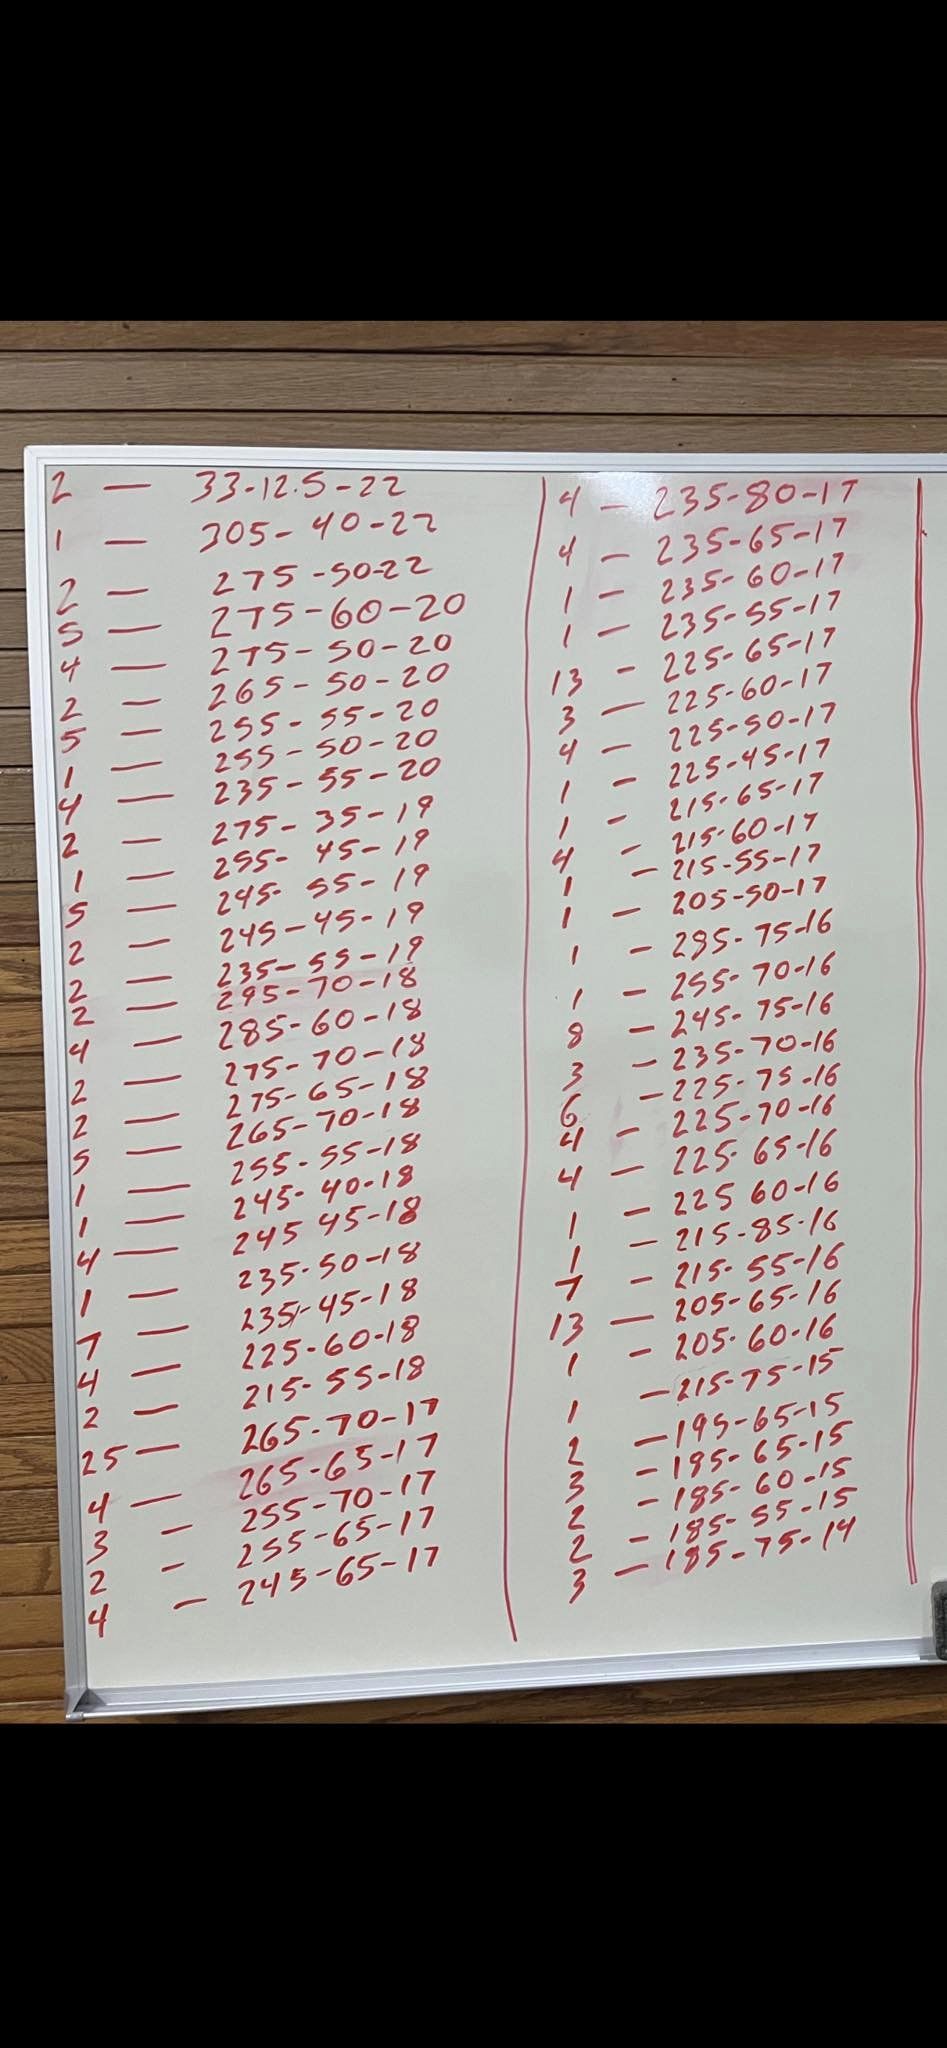 2 — 33-12.5-22
1 — 305-40-22
2 — 275-50-22
5 — 275-60-20
4 — 275-50-20
2 — 265-50-20
5 — 255-55-20
1 — 255-50-20
4 — 235-55-20
2 — 275-35-19
1 — 255-45-19
5 — 245-55-19
2 — 245-45-19
2 — 235-55-19
2 — 295-70-18
4 — 285-60-18
2 — 275-70-18
2 — 275-65-18
5 — 265-70-18
1 — 255-55-18
1 — 245-40-18
4 — 245 45-18
1 — 235-50-18
7 — 235-45-18
4 — 225-60-18
2 — 215-55-18
25 — 265-70-17
4 — 265-65-17
3 — 255-70-17
2 — 255-65-17
4 — 245-65-17
4 — 235-80-17
4 — 235-65-17
1 — 235-60-17
1 — 235-55-17
13 — 225-65-17
3 — 225-60-17
4 — 225-50-17
1 — 225-45-17
1 — 215-65-17
4 — 215-60-17
1 — 215-55-17
1 — 205-50-17
1 — 285-75-16
1 — 255-70-16
8 — 245-75-16
3 — 235-70-16
6 — 225-75-16
4 — 225-70-16
4 — 225-65-16
1 — 225 60-16
1 — 215-85-16
7 — 215-55-16
13 — 205-65-16
1 — 205-60-16
1 — 215-75-15
2 — 195-65-15
3 — 185-65-15
2 — 185-60-15
2 — 185-55-15
3 — 185-75-14